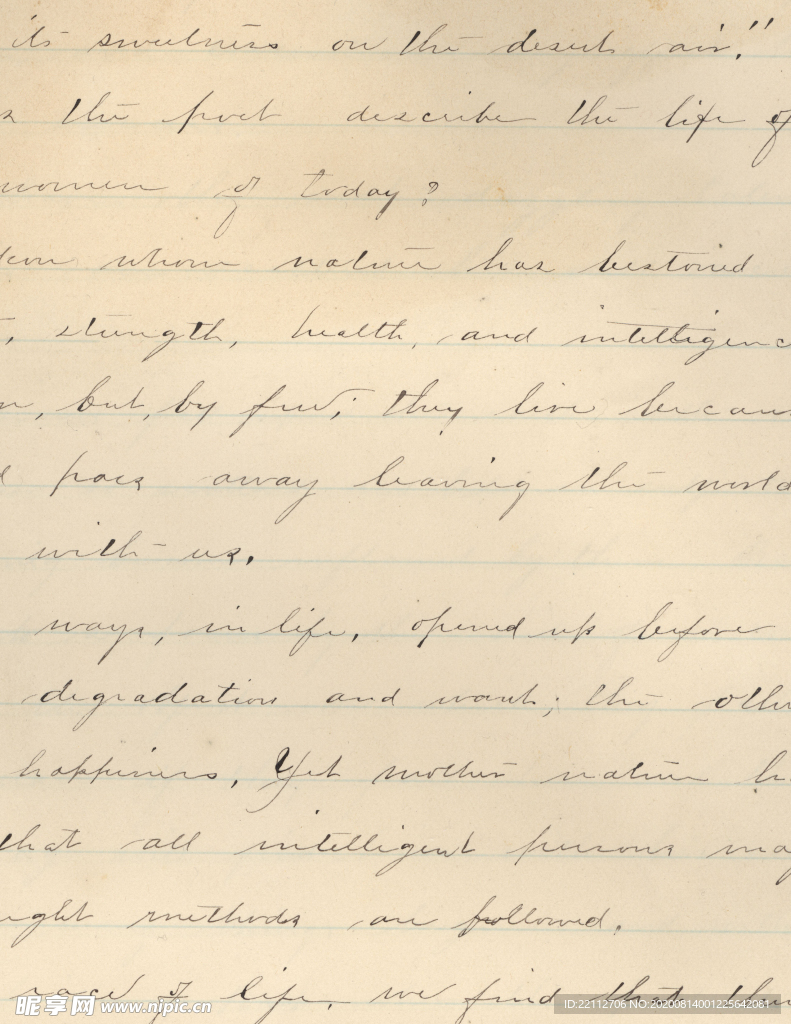 its sweetness on the desert air."
the poet describe the life of
women of today?
whom nature has bestowed
, strength, health, and intelligenc
, but, by few; they live becau
pass away leaving the world
with us.
ways, in life, opened up before
degradation and want; the othe
happiness, Yet mother nature ha
that all intelligent persons may
ight methods are followed.
race of life, we find that the
昵享网 www.nipic.cn
ID:22112706 NO:20200814001225642081